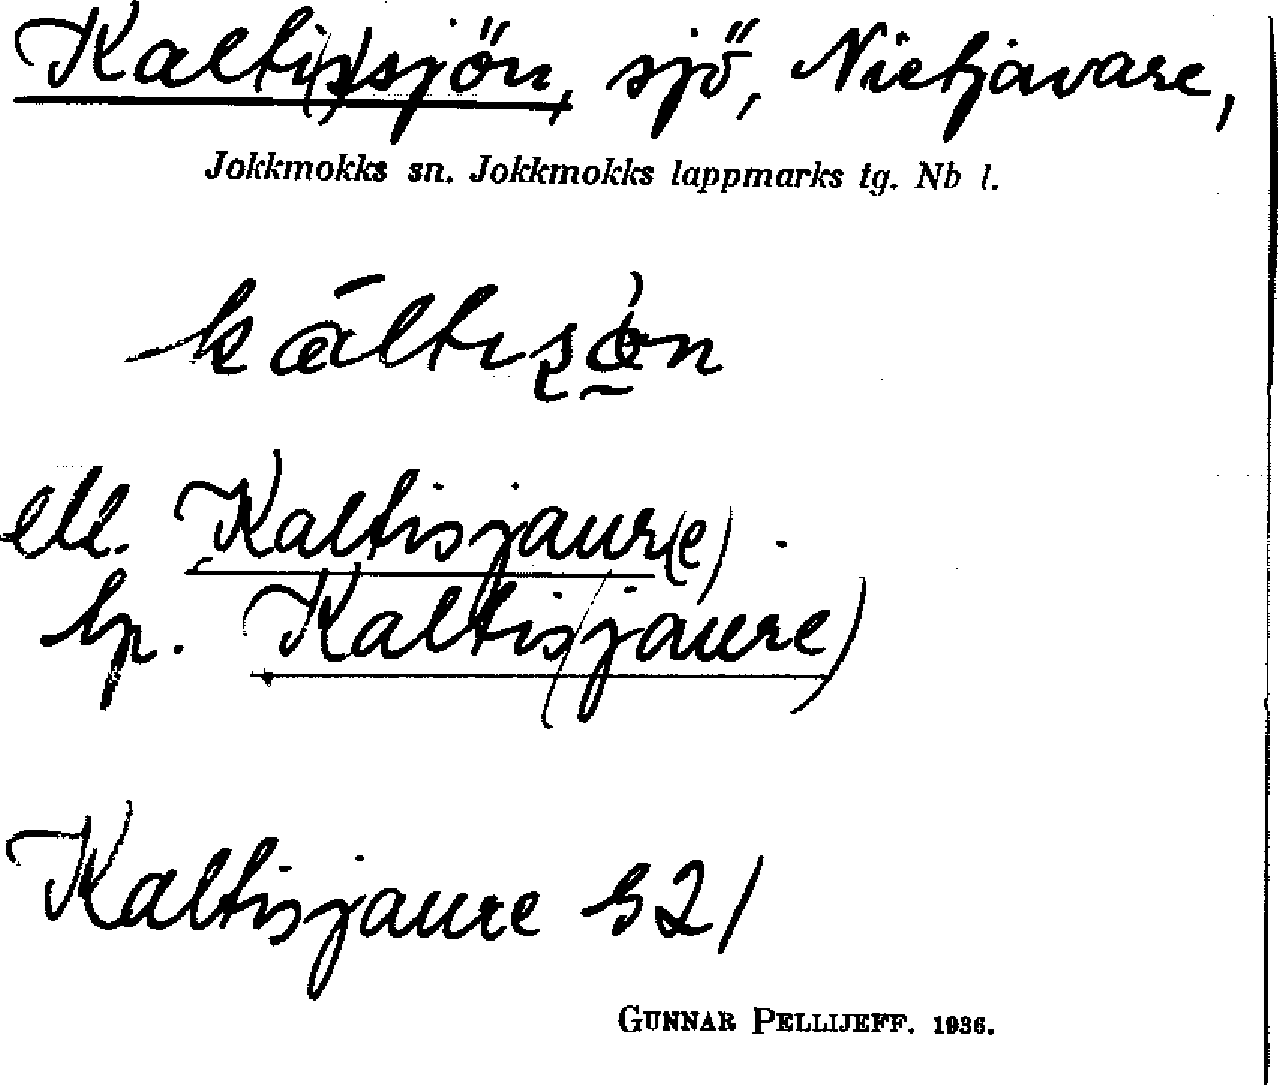 Kalti(s)sjön, sjö, Nietjavare,
Jokkmokks sn. Jokkmokks lappmarks tg. Nb l.
ell. Kaltisjaur(e).
lp. Kaltisjaure)
Kaltisjaure
GUNNAR PELLIJEFF. 1936.